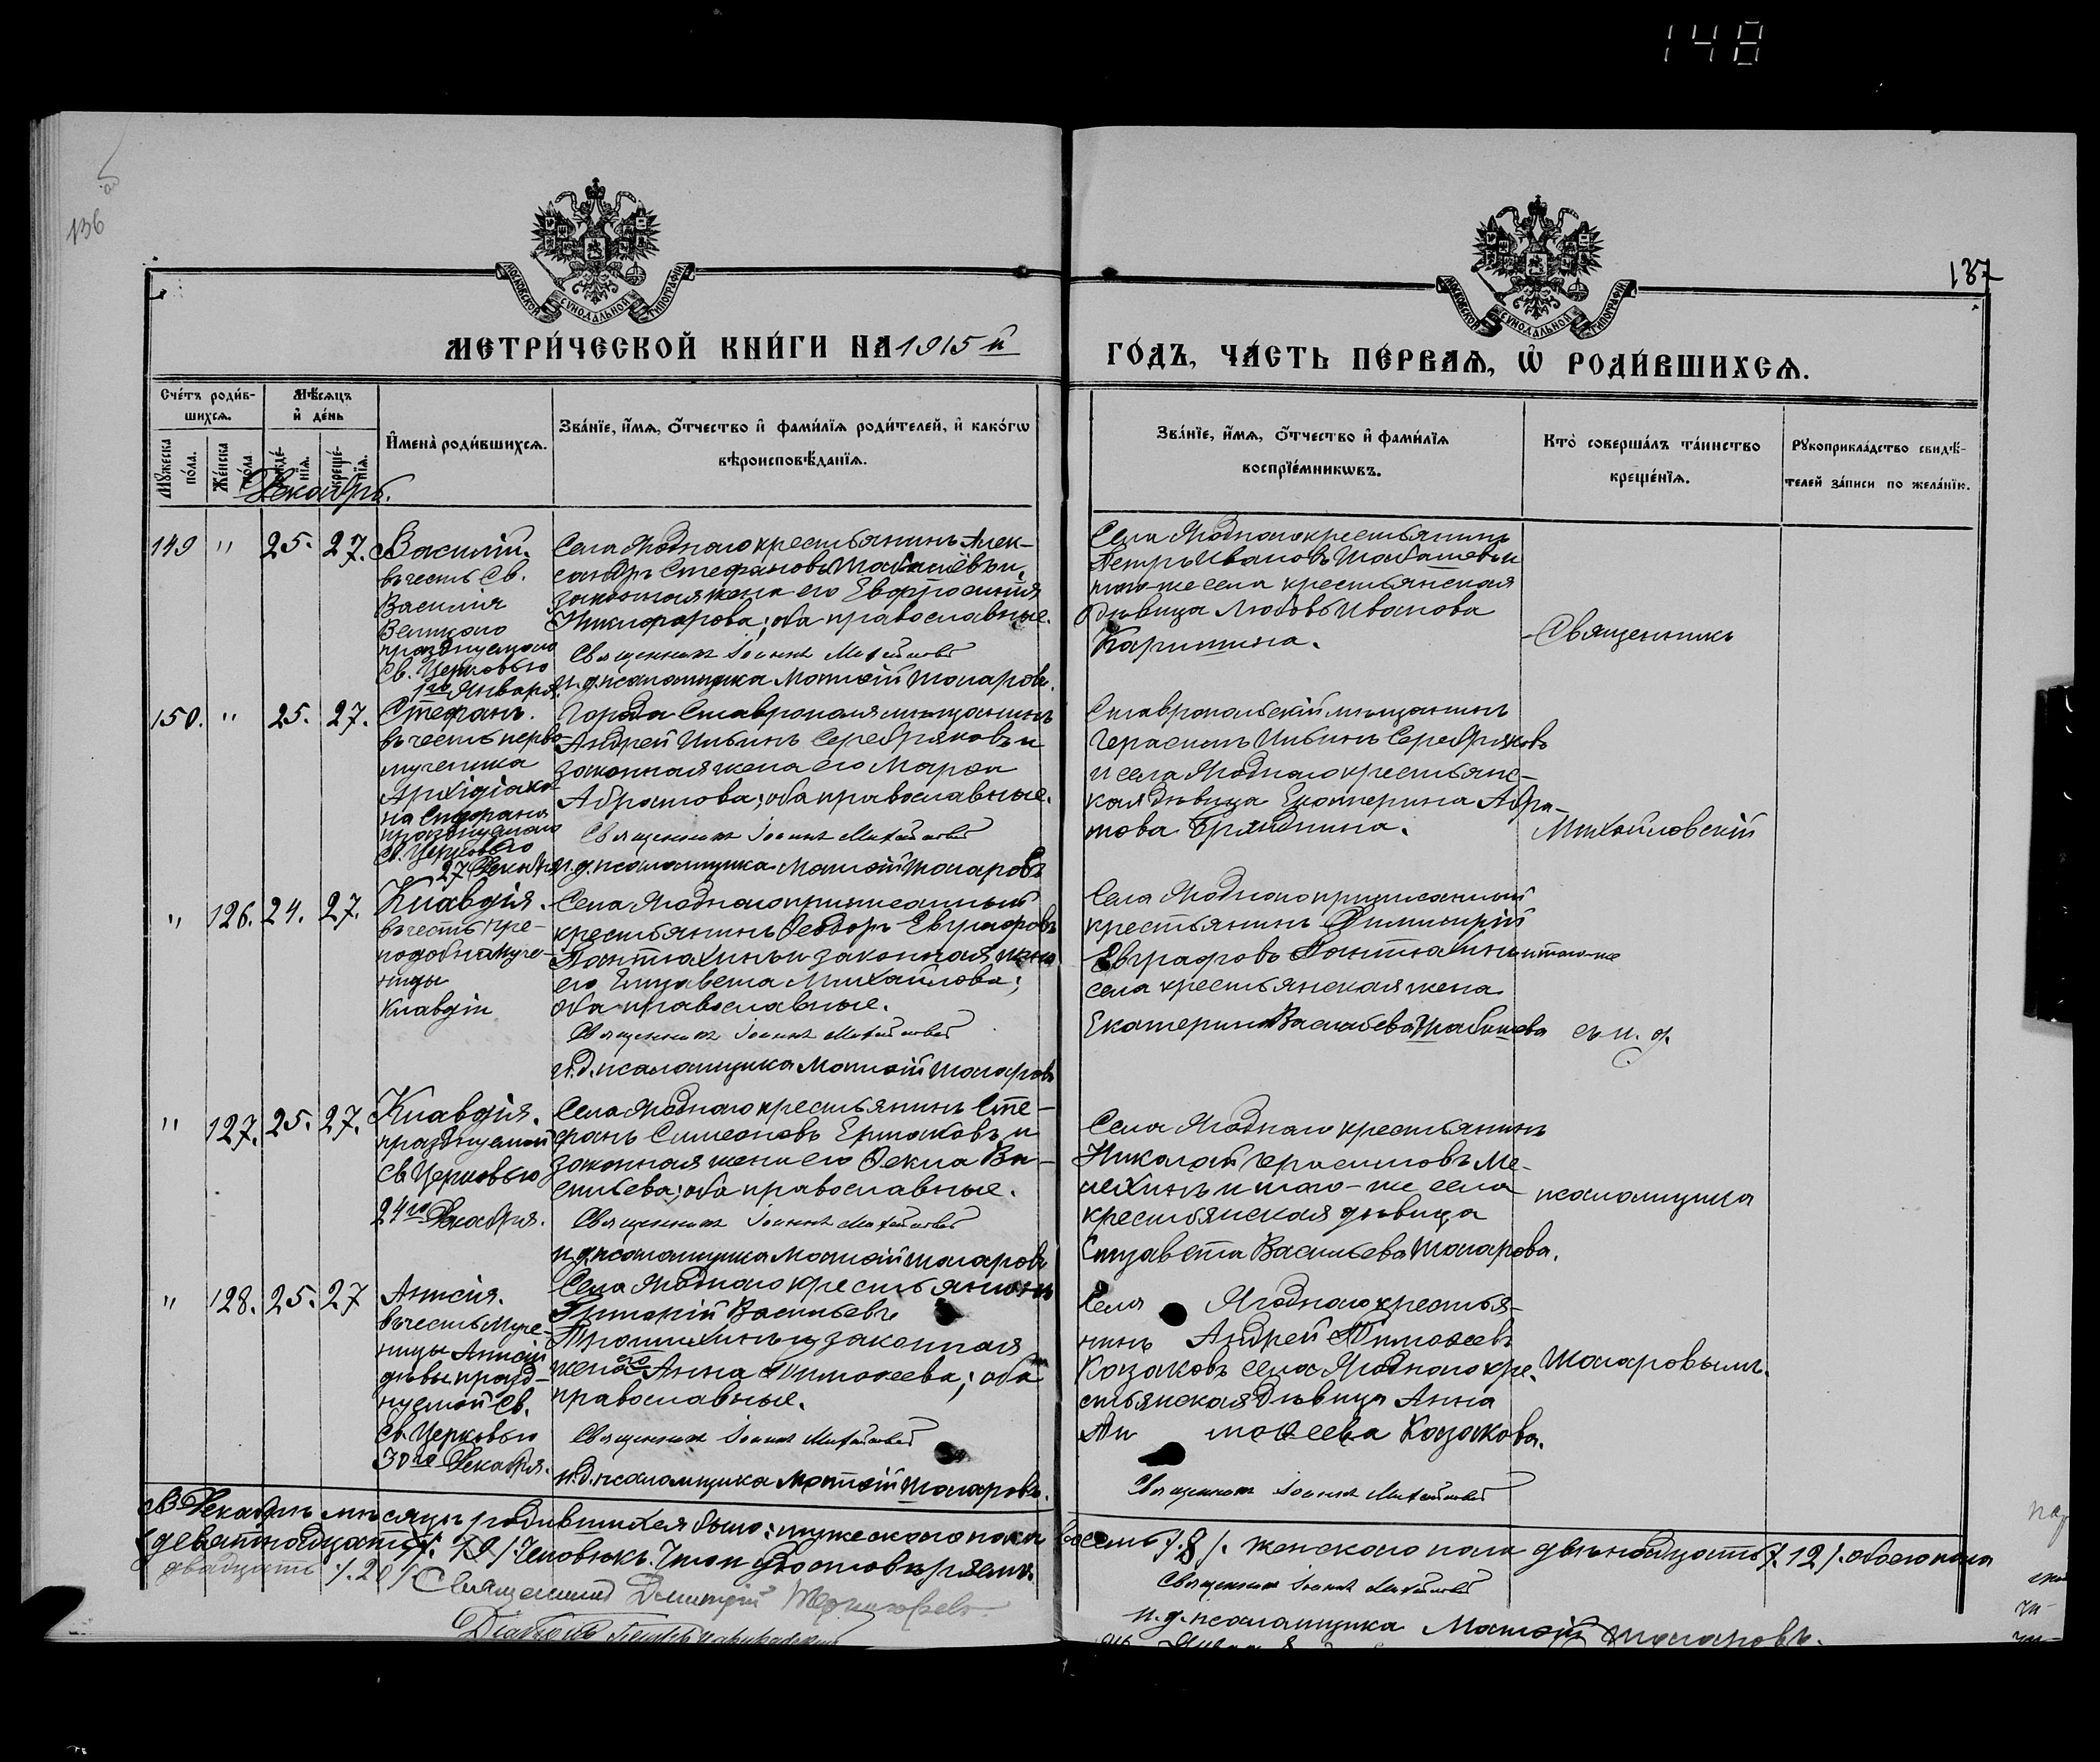 148
136
137
МОСКОВСКОЙ СѴНОДАЛЬНОЙ ТИПОГРАФІИ
МОСКОВСКОЙ СѴНОДАЛЬНОЙ ТИПОГРАФІИ
МЕТРИ́ЧЕСКОЙ КНИ́ГИ НА 1915 й
ГО́ДЪ, ЧА́СТЬ ПЕ́РВАѦ, Ѡ҆ РОДИ́ВШИХСѦ.
Сче́тъ роди́в-
шихсѧ.
Мꙋ́жеска по́ла.
Же́нска по́ла
Мѣ́сѧцъ
и҆ де́нь
рожде́-нїѧ.
креще́-нїѧ.
И҆мена̀ роди́вшихсѧ.
Зва́нїе, и҆́мѧ, ѻ҆́тчество и҆ фами́лїѧ роди́телей, и҆ како́гѡ
вѣроисповѣ́данїѧ.
Зва́нїе, и҆́мѧ, ѻ҆́тчество и҆ фами́лїѧ
воспрїе́мникѡвъ.
Кто̀ соверша́лъ та́инство
креще́нїѧ.
Рꙋкоприкла́дство свидѣ́-
телей за́писи по жела́нїю.
Декабрь.
149 " 25. 27. Василій.
въ честь Св.
Василія
Великого
празднуемого
Св. Церковью
1го Января.
Села Ягодного крестьянинъ Алек-
сандръ Стефановъ Табашёвъ и
законная жена его Евфросинія
Никифорова; оба православные.
Священникъ Іоаннъ Михайловскій
и. д. псаломщика Матѳій Токаровъ.
Села Ягодного крестьянинъ
Петръ Ивановъ Табашевъ и
того же села крестьянская
дѣвица Любовь Иванова
Священникъ
150. " 25. 27. Стефанъ.
въ честь перво-
мученика
Архідіако-
на Стефана
празднуемого
Св. Церковью
27 Декабря
Города Ставрополя мѣщанинъ
Андрей Ильинъ Серебряковъ и
законная жена его Марѳа
Абрамова; оба православные.
Священникъ Іоаннъ Михайловскій
и. д. псаломщика Матѳій Токаровъ
Ставропольскій мѣщанинъ
Герасимъ Ильинъ Серебряковъ
и села Ягодного крестьянс-
кая дѣвица Екатерина Абра-
мова
Михайловскій
" 126. 24. 27. Клавдія.
въ честь пре-
подобномуче-
ницы
Клавдіи
Села Ягодного приписанный
крестьянинъ Ѳеодоръ Евграфовъ
Пантюхинъ и законная жена
его Елизавета Михайлова;
оба православные.
Священникъ Іоаннъ Михайловскій
и. д. псаломщика Матѳій Токаровъ
Села Ягодного приписанный
крестьянинъ Димитрій
Евграфовъ Пантюхинъ и того-же
села крестьянская жена
Екатерина Васильева Табашева
съ и. д.
" 127. 25. 27. Клавдія.
празднуемой
Св. Церковью
24го Декабря.
Села Ягодного крестьянинъ Сте-
фанъ Симеоновъ Ермаковъ и
законная жена его Ѳекла Ва-
сильева; оба православные.
Священникъ Іоаннъ Михайловскій
и. д. псаломщика Матѳій Токаровъ
Села Ягодного крестьянинъ
Николай Герасимовъ Ме-
лехинъ и того-же села
крестьянская дѣвица
Елизавета Васильева Токарова.
псаломщика
" 128. 25. 27 Анисія.
въ честь Муче-
ницы Анисіи
дѣвы празд-
нуемой Св.
Св. Церковью
30го Декабря.
Села Ягодного крестьянинъ
Григорій Васильевъ
и законная
жена его Анна Тимоѳеева; оба
православные.
Священникъ Іоаннъ Михайловскій
и. д. псаломщика Матѳій Токаровъ.
Села Ягодного крестья-
нинъ Андрей Тимоѳеевъ
Казаковъ села Ягодного кре-
стьянская дѣвица Анна
Ти моѳеева Казакова.
Токаровымъ.
Священникъ Іоаннъ Михайловскій
В Декабрѣ мѣсяцѣ родившихся было: мужеского пола восемь /. 8 /. женского пола двѣнадцать /. 12 /. обоего пола
девятнадцать /. 19 /. человѣкъ. Въ томъ удостовѣряемъ.
двадцать /. 20 /.
Священникъ Іоаннъ Михайловскій
Священникъ Димитрій
и. д. псаломщика Матѳій Токаровъ.
Діаконъ